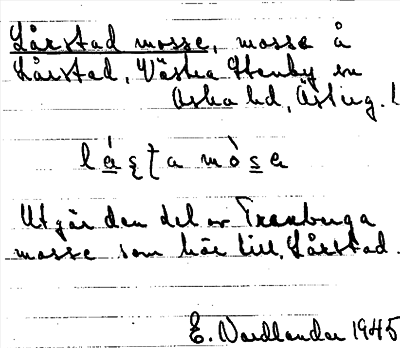 Lårstad mosse, mosse å
Lårstad, Västra Stenby sn
Aska hd, Östg.
Utgör den del av Traxbruga
mosse som hör till Lårstad.
E. Nordlander 1945